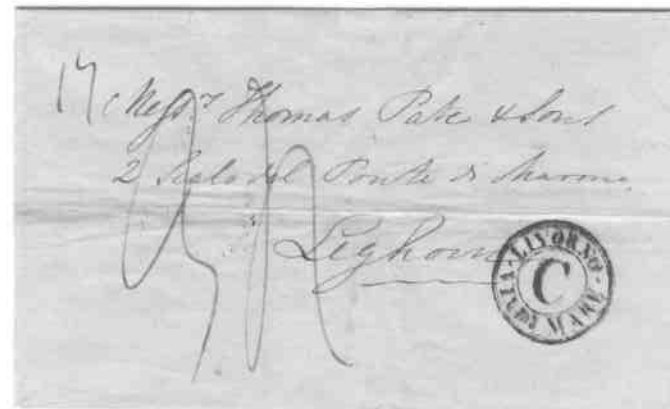 17 Messrs Thomas Pate & Sons
2 Scalo del Ponte di Marmo
Leghorn
LIVORNO
C
VIA DI MARE